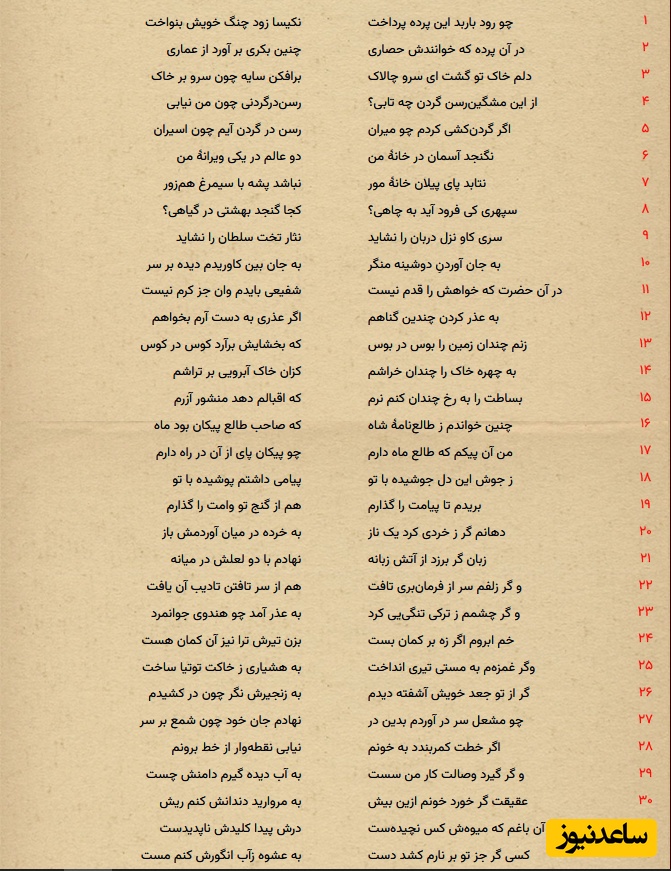 ۱ چو رود باربد این پرده پرداخت نکیسا زود چنگ خویش بنواخت
۲ در آن پرده که خوانندش حصاری چنین بکری بر آورد از عماری
۳ دلم خاک تو گشت ای سرو چالاک برافکن سایه چون سرو بر خاک
۴ از این مشگین‌رسن گردن چه تابی؟ رسن‌درگردنی چون من نیابی
۵ اگر گردن‌کشی کردم چو میران رسن در گردن آیم چون اسیران
۶ نگنجد آسمان در خانهٔ من دو عالم در یکی ویرانهٔ من
۷ نتابد پای پیلان خانهٔ مور نباشد پشه با سیمرغ هم‌زور
۸ سپهری کی فرود آید به چاهی؟ کجا گنجد بهشتی در گیاهی؟
۹ سری کاو نزل دربان را نشاید نثار تخت سلطان را نشاید
۱۰ به جان آوردنِ دوشینه منگر به جان بین کاوریدم دیده بر سر
۱۱ در آن حضرت که خواهش را قدم نیست شفیعی بایدم وان جز کرم نیست
۱۲ به عذر کردن چندین گناهم اگر عذری به دست آرم بخواهم
۱۳ زنم چندان زمین را بوس در بوس که بخشایش برآرد کوس در کوس
۱۴ به چهره خاک را چندان خراشم کزان خاک آبرویی بر تراشم
۱۵ بساطت را به رخ چندان کنم نرم که اقبالم دهد منشور آزرم
۱۶ چنین خواندم ز طالع‌نامهٔ شاه که صاحب طالع پیکان بود ماه
۱۷ من آن پیکم که طالع ماه دارم چو پیکان پای از آن در راه دارم
۱۸ ز جوش این دل جوشیده با تو پیامی داشتم پوشیده با تو
۱۹ بریدم تا پیامت را گذارم هم از گنج تو وامت را گذارم
۲۰ دهانم گر ز خردی کرد یک ناز به خرده در میان آوردمش باز
۲۱ زبان گر برزد از آتش زبانه نهادم با دو لعلش در میانه
۲۲ و گر زلفم سر از فرمان‌بری تافت هم از سر تافتن تادیب آن یافت
۲۳ و گر چشمم ز ترکی تنگی‌یی کرد به عذر آمد چو هندوی جوانمرد
۲۴ خم ابروم اگر زه بر کمان بست بزن تیرش ترا نیز آن کمان هست
۲۵ وگر غمزه‌م به مستی تیری انداخت به هشیاری ز خاکت توتیا ساخت
۲۶ گر از تو جعد خویش آشفته دیدم به زنجیرش نگر چون در کشیدم
۲۷ چو مشعل سر در آوردم بدین در نهادم جان خود چون شمع بر سر
۲۸ اگر خطت کمربندد به خونم نیابی نقطه‌وار از خط برونم
۲۹ و گر گیرد وصالت کار من سست به آب دیده گیرم دامنش چست
۳۰ عقیقت گر خورد خونم ازین بیش به مروارید دندانش کنم ریش
آن باغم که میوه‌ش کس نچیده‌ست درش پیدا کلیدش ناپدیدست
کسی گر جز تو بر نارم کشد دست به عشوه زآب انگورش کنم مست
ساعدنیوز